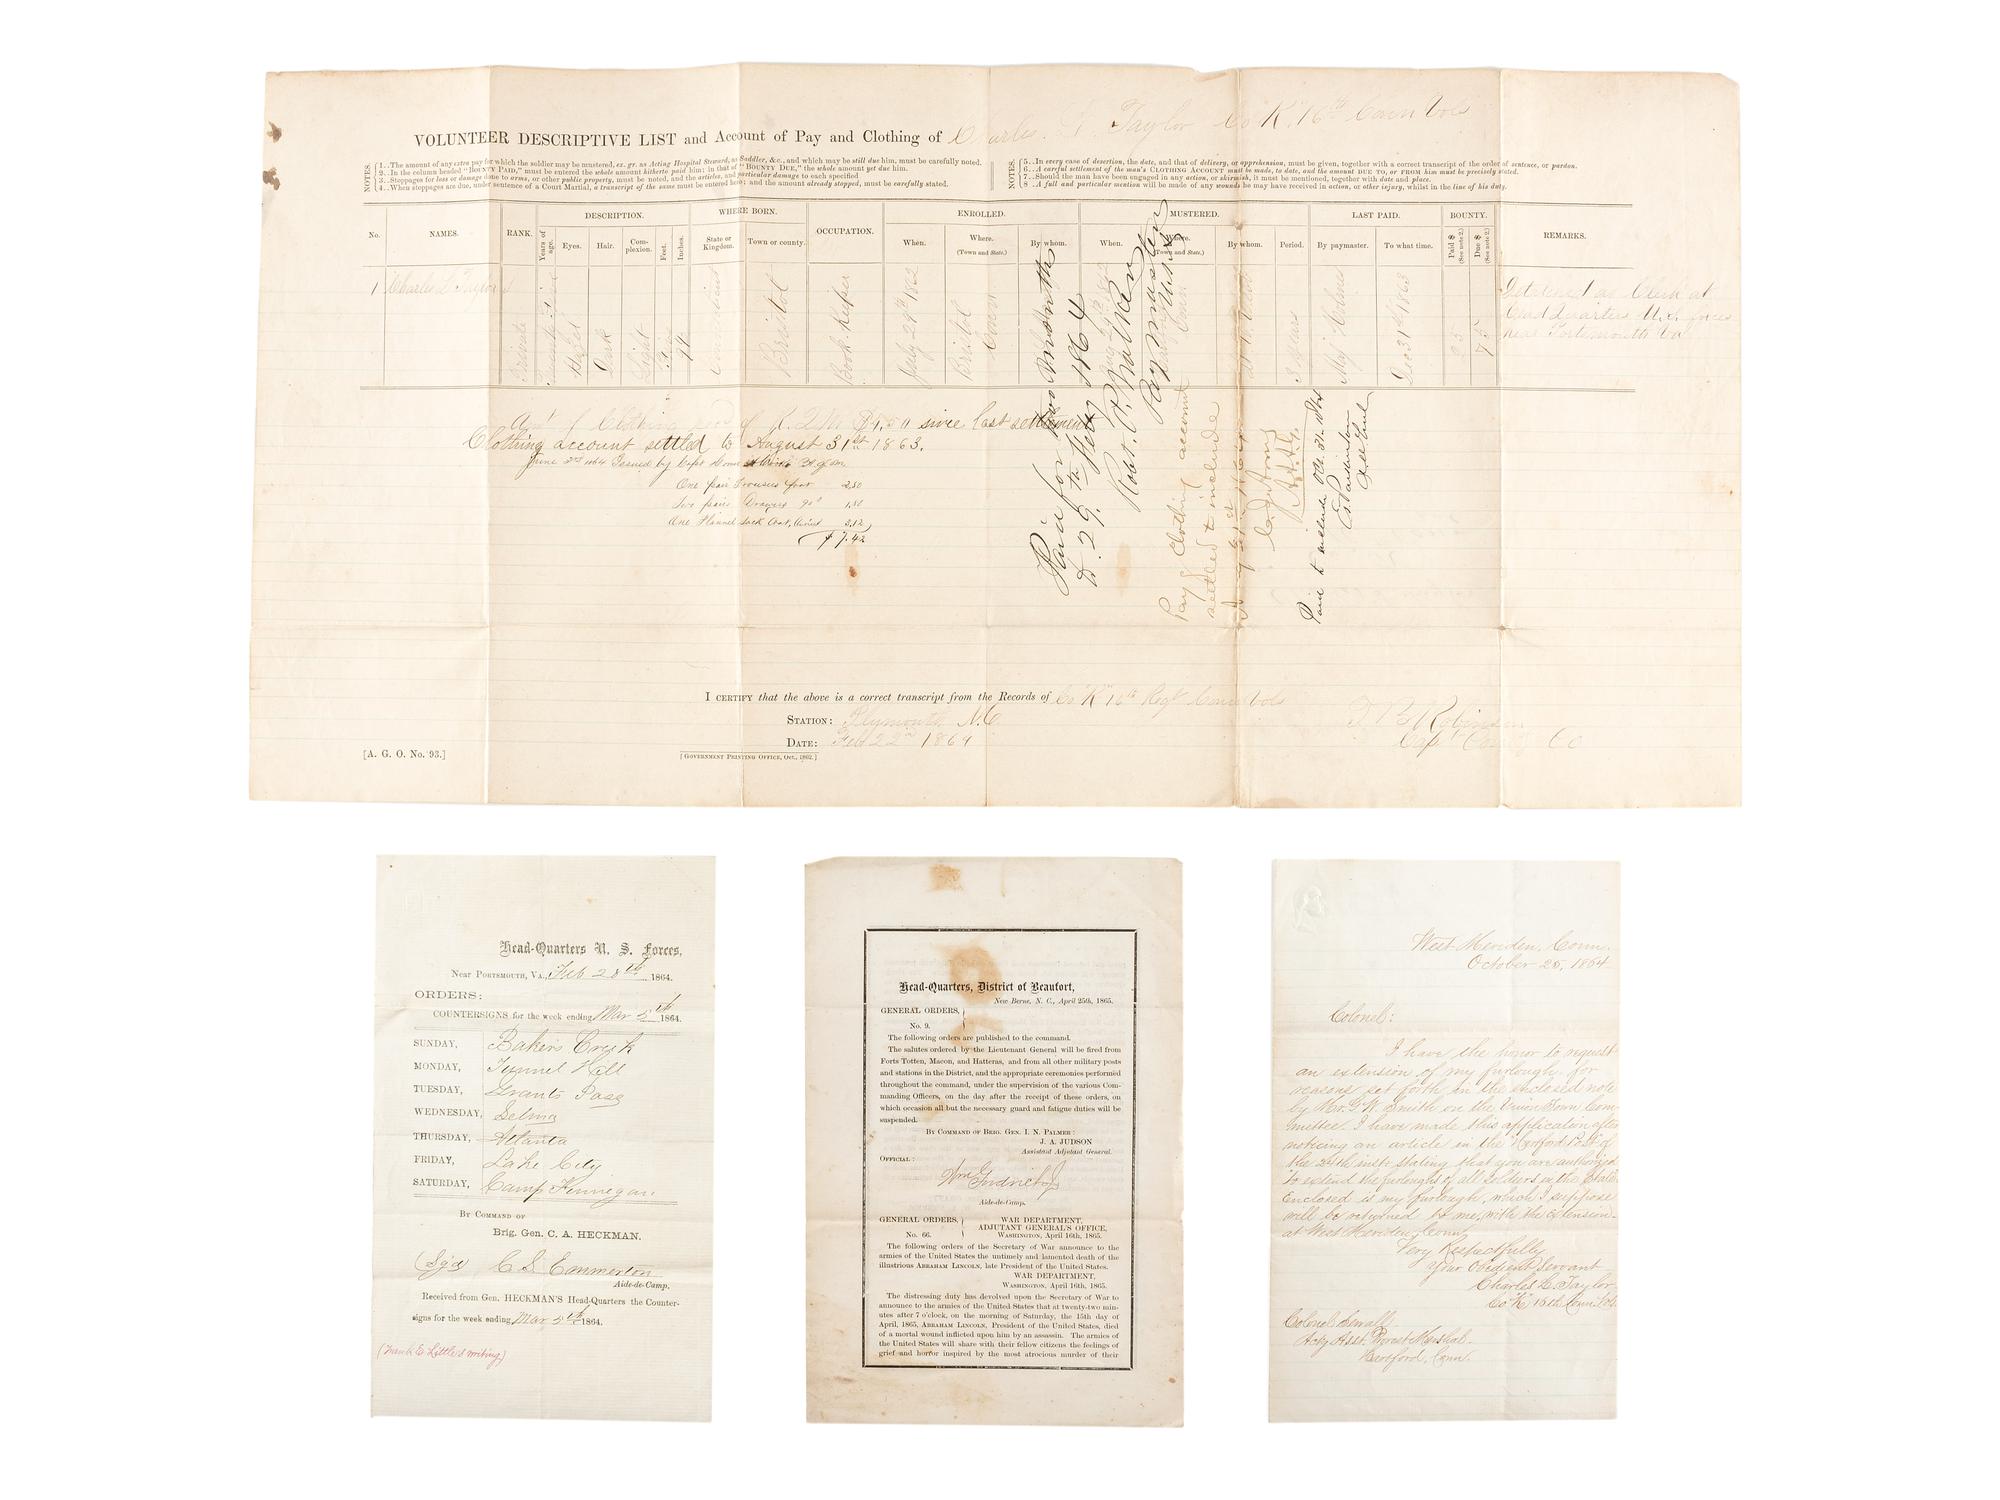 VOLUNTEER DESCRIPTIVE LIST and Account of Pay and Clothing of Charles Taylor Co K. 16th Conn Vols
NOTES.
1..The amount of any extra pay for which the soldier may be mustered, ex. gr. as Acting Hospital Steward, as Saddler, &c., and which may be still due him, must be carefully noted.
2..In the column headed "BOUNTY PAID," must be entered the whole amount hitherto paid him; in that of "BOUNTY DUE," the whole amount yet due him.
3..Stoppages for loss or damage done to arms, or other public property, must be noted, and the articles, and particular damage to each specified
4..When stoppages are due, under sentence of a Court Martial, a transcript of the same must be entered here; and the amount already stopped, must be carefully stated.
NOTES.
5..In every case of desertion, the date, and that of delivery, or apprehension, must be given, together with a correct transcript of the order of sentence, or pardon.
6..A careful settlement of the man's CLOTHING ACCOUNT must be made, to date, and the amount DUE TO, or FROM him must be precisely stated.
7..Should the man have been engaged in any action, or skirmish, it must be mentioned, together with date and place.
8..A full and particular mention will be made of any wounds he may have received in action, or other injury, whilst in the line of his duty.
DESCRIPTION. WHERE BORN. ENROLLED. MUSTERED. LAST PAID. BOUNTY.
No. NAMES. RANK. Years of age. Eyes. Hair. Complexion. Feet. Inches. State or Kingdom. Town or county. OCCUPATION. When. Where. (Town and State.) By whom. When. Where. (Town and State.) By whom. Period. By paymaster. To what time. Paid $ (See note 2.) Due $ (See note 2.) REMARKS.
1 Charles L Taylor Private Twenty Five Hazel Dark Light Connecticut Bristol Book Keeper July 24th 1862 Bristol Conn 3 Years Maj Holmes Dec 31st 1863 25 75
Detailed as Clerk at
Head quarters U.S. forces
near Portsmouth Va
Amt of Clothing of R.Q.M. since last settlement
Clothing account settled to August 31st 1863.
June 1864 Issued by Capt
One pair Trousers foot 2,50
Two pairs Drawers 90c 1,80
One Flannel Sack Coat, 3,12
$ 7.42
Paid for two months
to 29th Feby 1864
Robt. P. Walker
Paymaster
Pay & Clothing account
settled to include
Paid to include Oct. 31st 1864
I CERTIFY that the above is a correct transcript from the Records of Co "K" 16th Regt Conn Vols
STATION: Plymouth N.C.
DATE: Feb 22nd 1864
T B Robinson
Capt Comdg Co
[A. G. O. No. 93.]
[GOVERNMENT PRINTING OFFICE, Oct., 1862.]
Head-Quarters U. S. Forces,
Near PORTSMOUTH, VA., Feb 28th 1864.
ORDERS:
COUNTERSIGNS for the week ending Mar 5th 1864.
SUNDAY, Bakers Creek
MONDAY, Tunnel Hill
TUESDAY, Grants Pass
WEDNESDAY, Selma
THURSDAY, Atlanta
FRIDAY, Lake City
SATURDAY, Camp Finnegan.
BY COMMAND OF
Brig. Gen. C. A. HECKMAN.
(Sg'd) C. S. Emmerton
Aide-de-Camp.
Received from Gen. HECKMAN'S Head-Quarters the Counter-
signs for the week ending Mar 5th 1864.
(Frank E. Little's writing)
Head-Quarters, District of Beaufort,
New Berne, N. C., April 25th, 1865.
GENERAL ORDERS,
No. 9.
The following orders are published to the command.
The salutes ordered by the Lieutenant General will be fired from
Forts Totten, Macon, and Hatteras, and from all other military posts
and stations in the District, and the appropriate ceremonies performed
throughout the command, under the supervision of the various Com-
manding Officers, on the day after the receipt of these orders, on
which occasion all but the necessary guard and fatigue duties will be
suspended.
BY COMMAND OF BRIG. GEN. I. N. PALMER:
J. A. JUDSON
Assistant Adjutant General.
OFFICIAL:
Aide-de-Camp.
GENERAL ORDERS,
No. 66.
WAR DEPARTMENT,
ADJUTANT GENERAL'S OFFICE,
WASHINGTON, April 16th, 1865.
The following orders of the Secretary of War announce to the
armies of the United States the untimely and lamented death of the
illustrious ABRAHAM LINCOLN, late President of the United States.
WAR DEPARTMENT,
WASHINGTON, April 16th, 1865.
The distressing duty has devolved upon the Secretary of War to
announce to the armies of the United States that at twenty-two min-
utes after 7 o'clock, on the morning of Saturday, the 15th day of
April, 1865, ABRAHAM LINCOLN, President of the United States, died
of a mortal wound inflicted upon him by an assassin. The armies of
the United States will share with their fellow citizens the feelings of
grief and horror inspired by the most atrocious murder of their
West Meriden, Conn.
October 25, 1864
Colonel:
I have the honor to request
an extension of my furlough for
reasons set forth in the enclosed note
by Mr. G. W. Smith on the Union Town Com-
mittee. I have made this application after
noticing an article in the Hartford Post of
the 24th inst. stating that you are authorized
to extend the furloughs of all soldiers in the State.
Enclosed is my furlough, which I suppose
will be returned to me, with the extension-
at West Meriden, Conn.
Very Respectfully
Your Obedient Servant
Charles L. Taylor
Co "K" 16th Conn Vols.
Colonel
Actg Asst. Provost Marshal-
Hartford, Conn.